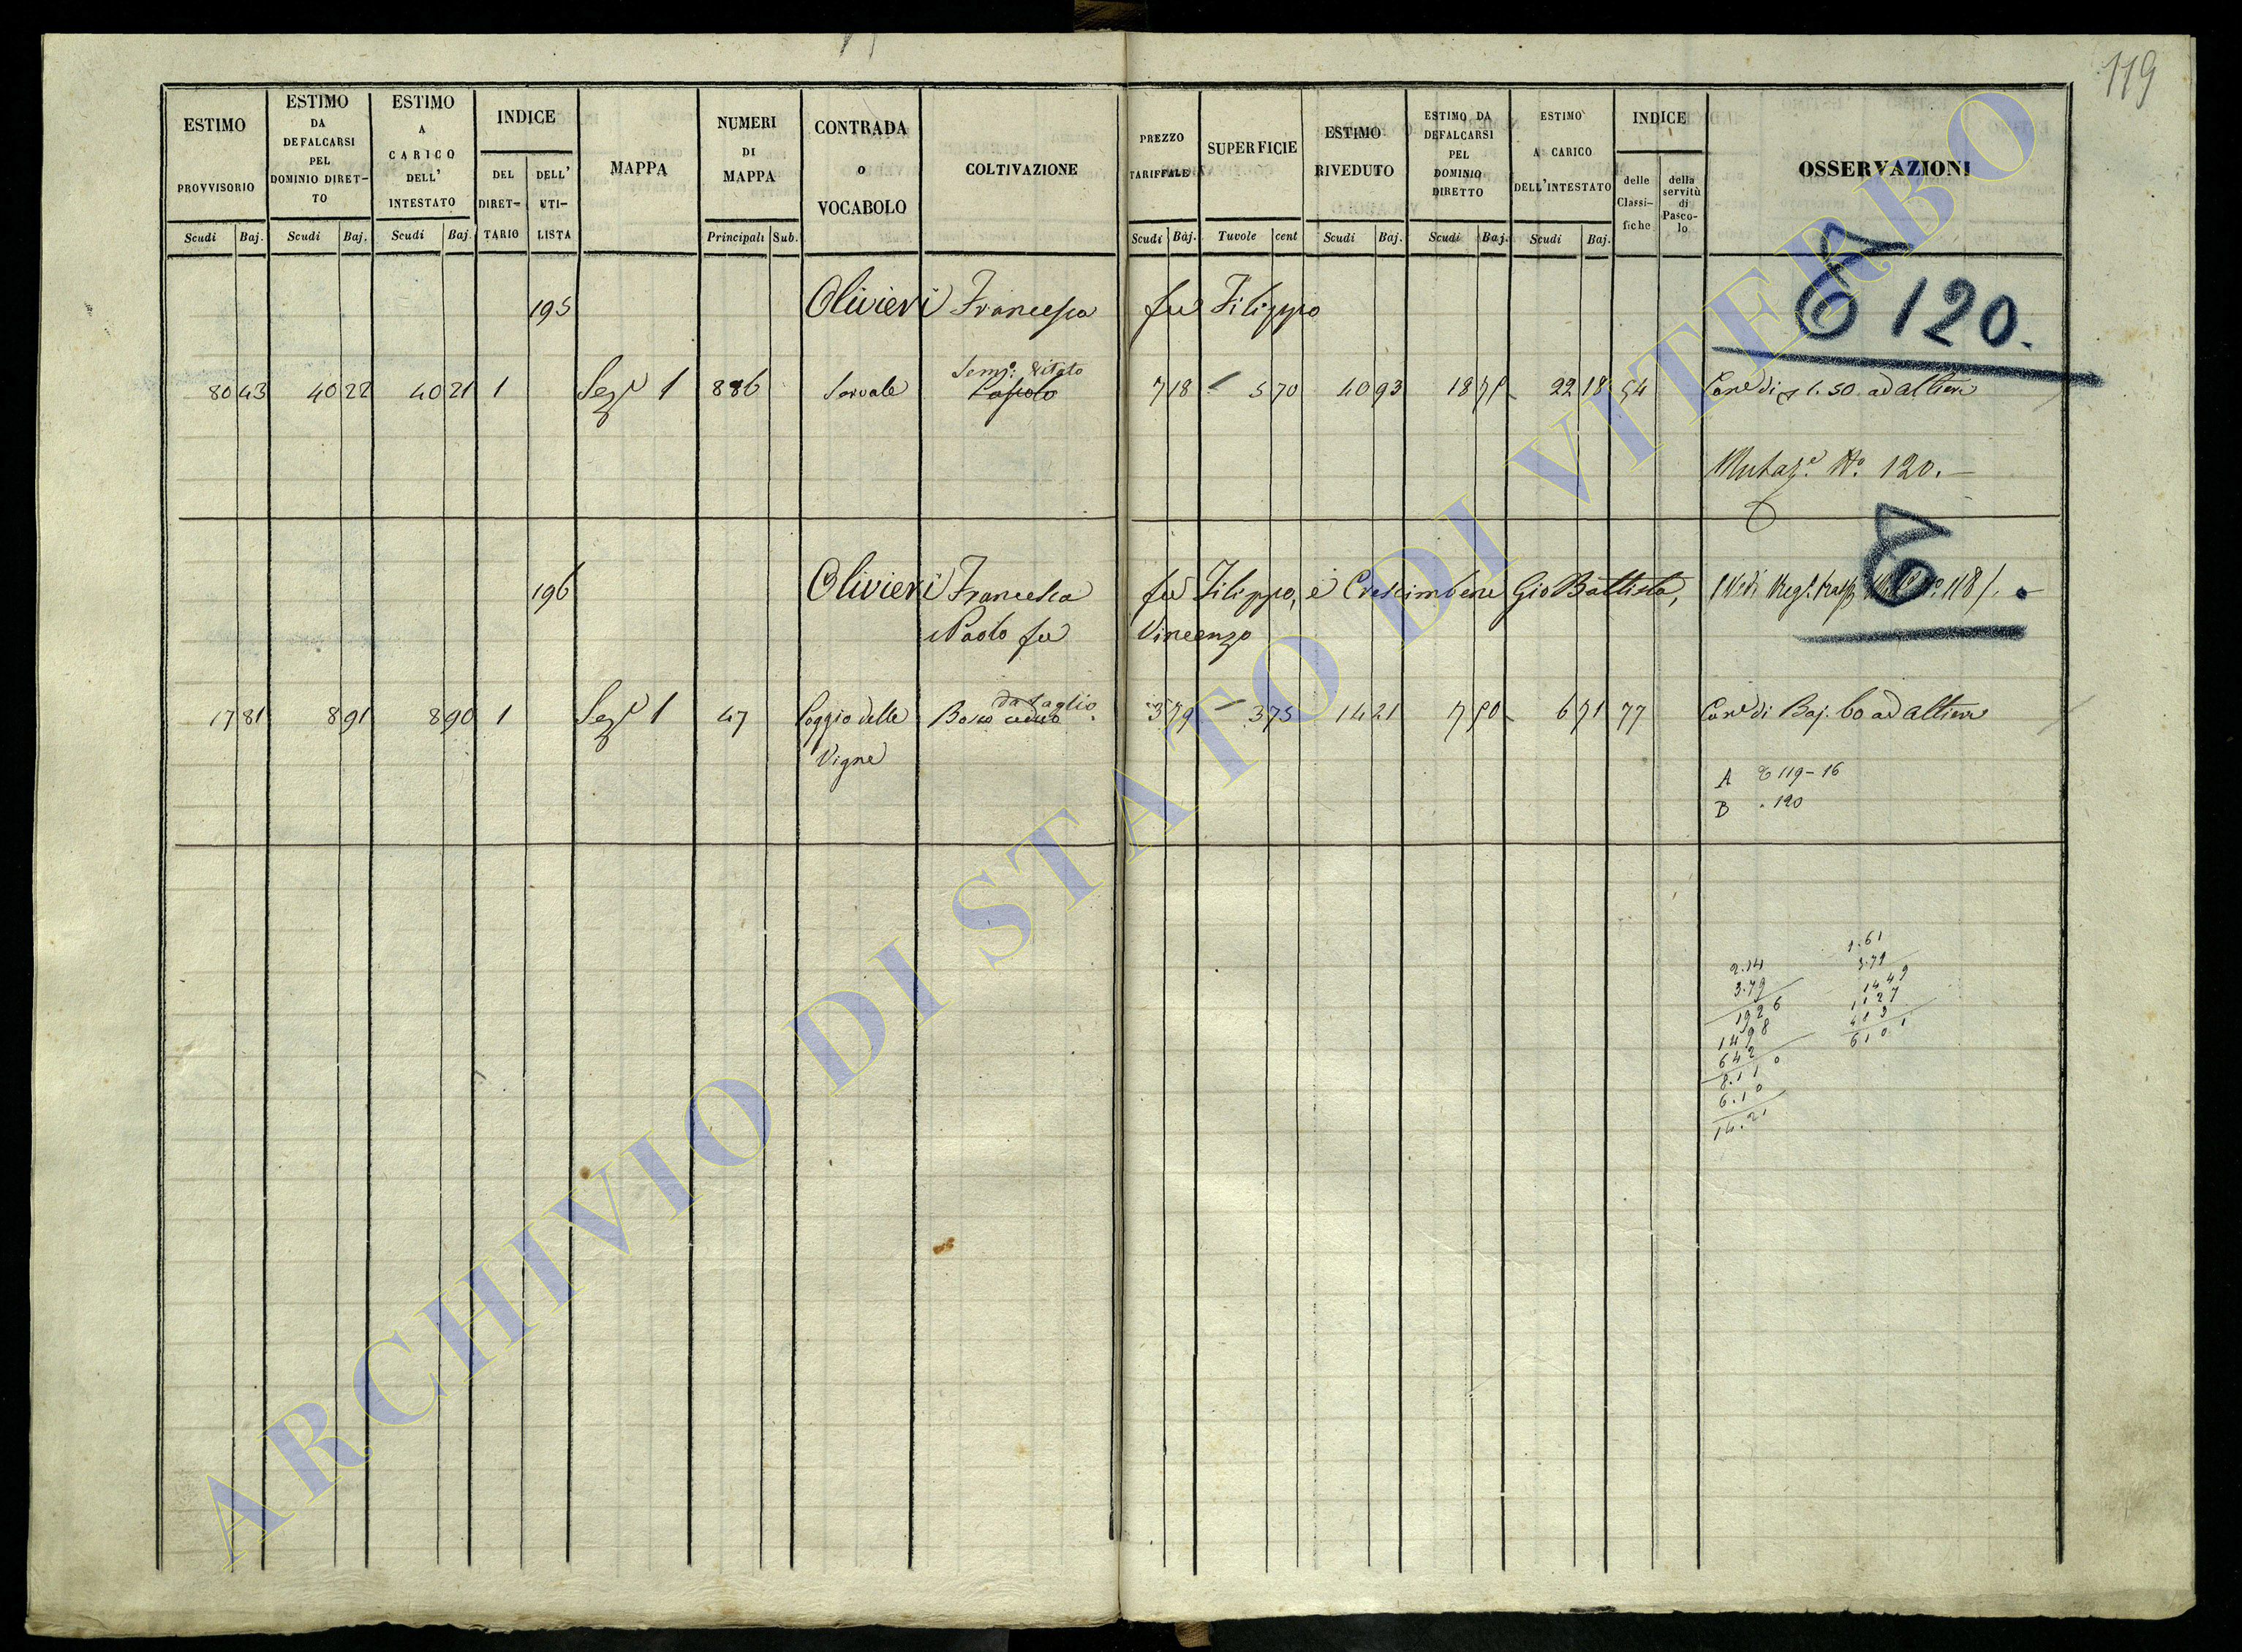 119
ESTIMO PROVVISORIO
ESTIMO DA DEFALCARSI PEL DOMINIO DIRET-TO
ESTIMO A CARICO DELL' INTESTATO
INDICE
DEL DIRET-TARIO
DELL' UTI-LISTA
MAPPA
NUMERI DI MAPPA
CONTRADA o VOCABOLO
COLTIVAZIONE
PREZZO TARIFFALE
SUPERFICIE
ESTIMO RIVEDUTO
ESTIMO DA DEFALCARSI PEL DOMINIO DIRETTO
ESTIMO A CARICO DELL'INTESTATO
INDICE
delle Classi-fiche
della servitù di Pasco-lo
OSSERVAZIONI
Scudi Baj. Scudi Baj. Scudi Baj. Principali Sub. Scudi Baj. Tavole cent Scudi Baj. Scudi Baj. Scudi Baj.
195 Olivieri Francesca fu Filippo
120.
Semp: vitato
80 43 40 22 40 21 1 Sez.e 1 886 Pascolo 7 18 5 70 40 93 18 75 22 18 54 di 1.50 ad Altieri
Mutaz.e N.o 120.
196 Olivieri Francesca fu Filippo, e Crescimbene Gio Battista, Vedi
Paolo fu Vincenzo
da taglio
17 81 8 91 8 90 1 Sez.e 1 47 Poggio delle Bosco ceduo 3 79 3 75 14 21 7 50 6 71 77 di Baj. 60 ad Altieri
Vigne
A 119-16
B 120
2.14
3.79
1926
1498
642
8.11 0
6.10
14.21
1.61
3.79
1449
1127
483
6101
ARCHIVIO DI STATO DI VITERBO